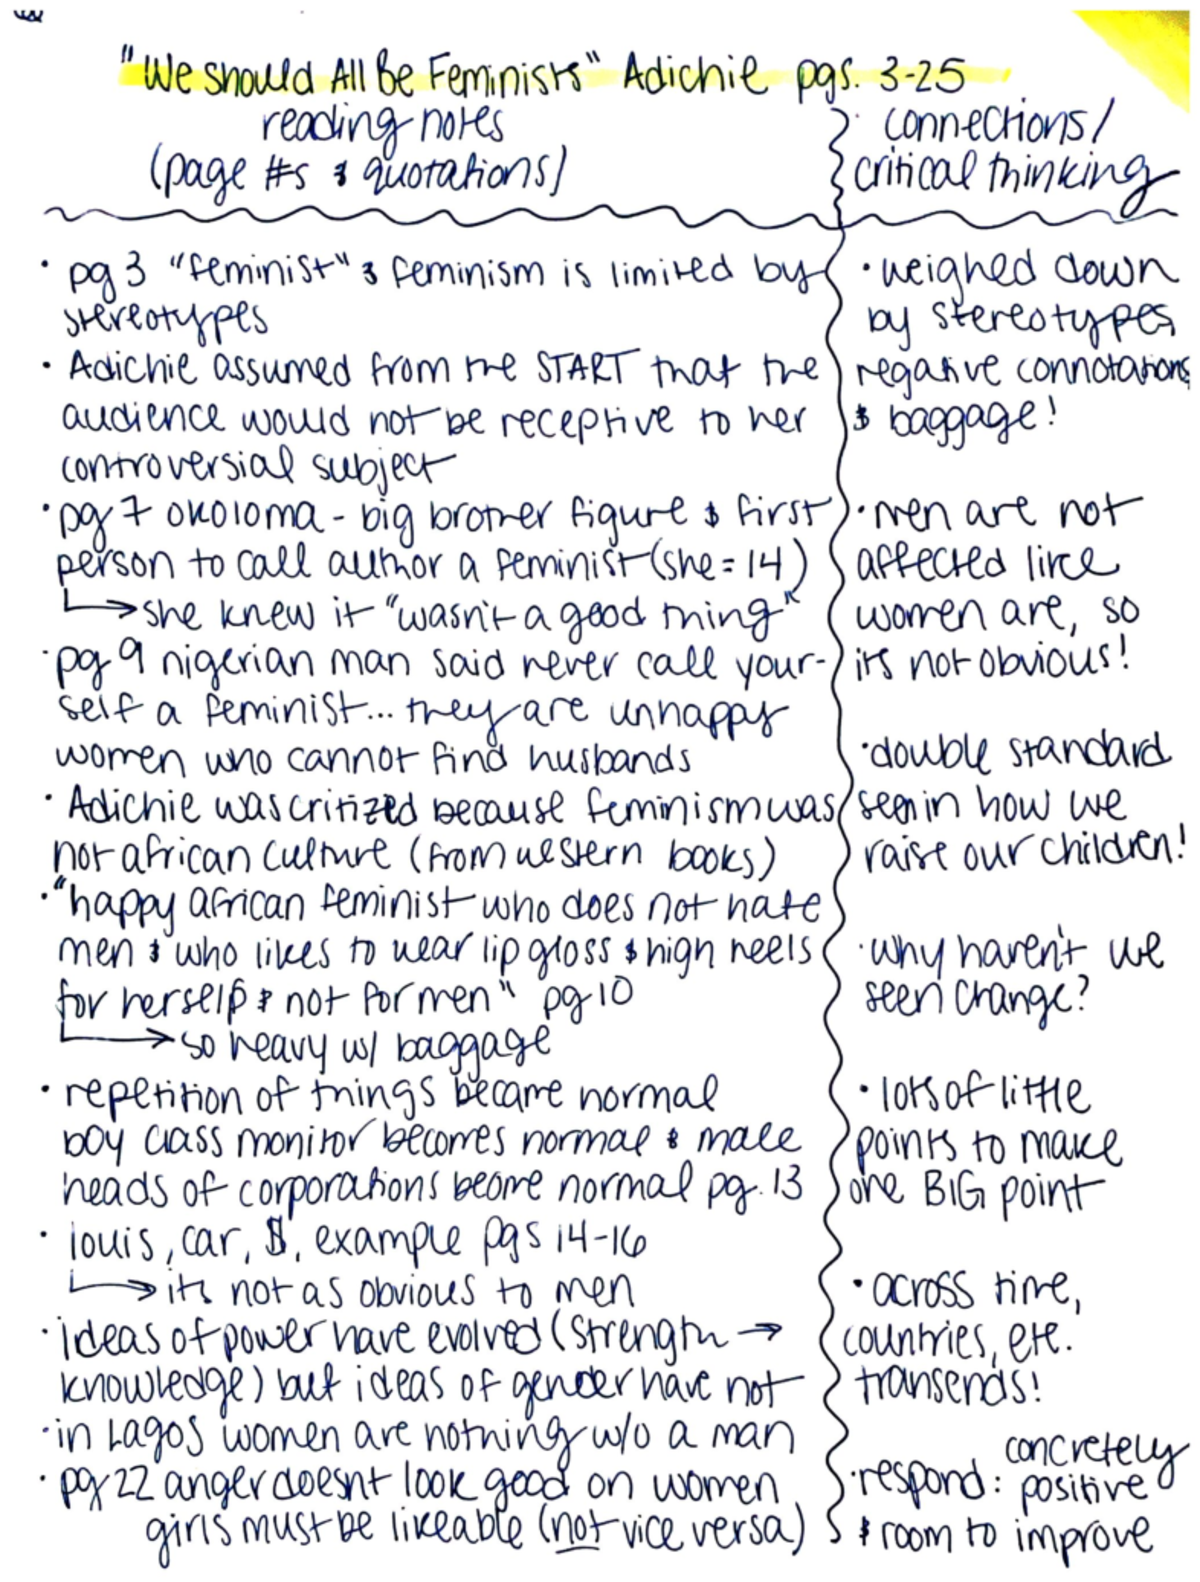 "We should All Be Feminists" Adichie pgs. 3-25
reading notes
(page #s & quotations)
connections/
critical thinking
• pg 3 "feminist" & feminism is limited by
stereotypes
• Adichie assumed from the START that the
audience would not be receptive to her
controversial subject
• pg 7 okoloma - big brother figure & first
person to call author a feminist (she = 14)
↳ she knew it "wasn't a good thing"
• pg 9 nigerian man said never call your-
self a feminist... they are unhappy
women who cannot find husbands
• Adichie was critized because feminism was
not african culture (from western books)
• "happy african feminist who does not hate
men & who likes to wear lip gloss & high heels
for herself & not for men" pg 10
↳ so heavy w/ baggage
• repetition of things became normal
boy class monitor becomes normal & male
heads of corporations beome normal pg. 13
• louis, car, $, example pgs 14-16
↳ its not as obvious to men
• ideas of power have evolved (strength →
knowledge) but ideas of gender have not
• in Lagos women are nothing w/o a man
• pg 22 anger doesnt look good on women
girls must be likeable (not vice versa)
• weighed down
by stereotypes
negative connotations
& baggage!
• men are not
affected like
women are, so
its not obvious!
• double standard
seen in how we
raise our children!
• why haven't we
seen change?
• lots of little
points to make
one BIG point
• across time,
countries, etc.
transends!
concretely
• respond: positive
& room to improve